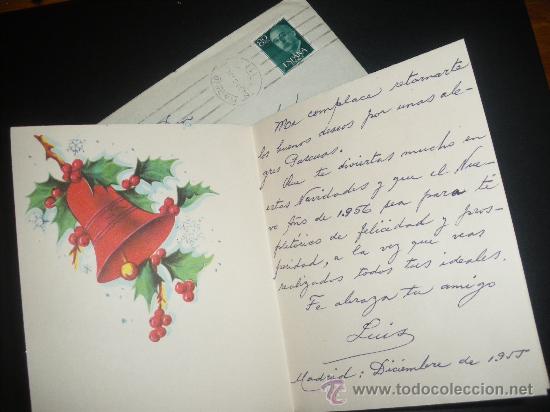 80
ESPAÑA
Me complace retornarte
los buenos deseos por unas ale-
gres Pascuas.
Que te diviertas mucho en
estas Navidades y que el Nue-
vo Año de 1956 sea para tí
pletórico de felicidad y pros-
peridad, a la vez que veas
realizados todos tus ideales.
Te abraza tu amigo
Luis
Madrid: Diciembre de 1955
www.todocoleccion.net